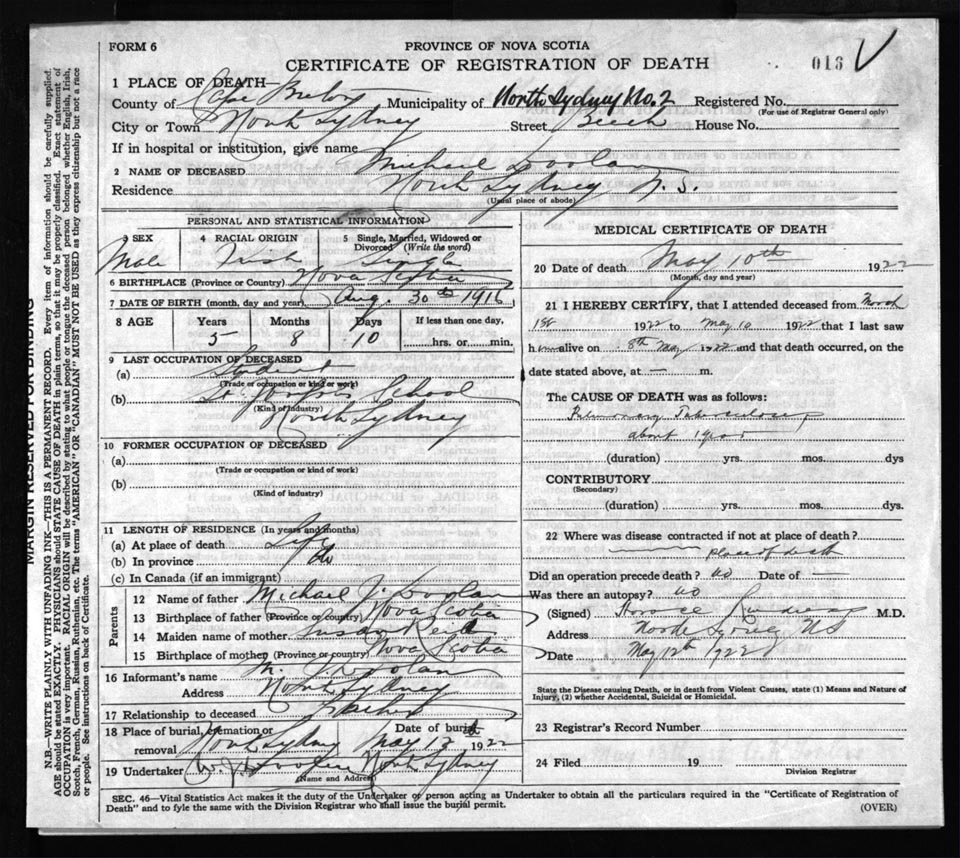 FORM 6
PROVINCE OF NOVA SCOTIA
CERTIFICATE OF REGISTRATION OF DEATH
013
1 PLACE OF DEATH
County of Cape Breton Municipality of North Sydney No. 2 Registered No.
(For use of Registrar General only)
City or Town North Sydney Street Beech House No.
If in hospital or institution, give name
2 NAME OF DECEASED Michael Doolan
Residence North Sydney N. S.
(Usual place of abode)
PERSONAL AND STATISTICAL INFORMATION
3 SEX Male
4 RACIAL ORIGIN Irish
5 Single, Married, Widowed or Divorced (Write the word) Single
6 BIRTHPLACE (Province or Country) Nova Scotia
7 DATE OF BIRTH (month, day and year) Aug. 30th 1916
8 AGE Years Months Days If less than one day,
5 8 10 hrs. or min.
9 LAST OCCUPATION OF DECEASED
(a) Student
(Trade or occupation or kind of work)
(b) St. School
(Kind of industry)
North Sydney
10 FORMER OCCUPATION OF DECEASED
(a)
(Trade or occupation or kind of work)
(b)
(Kind of industry)
11 LENGTH OF RESIDENCE (In years and months)
(a) At place of death Life
(b) In province do
(c) In Canada (if an immigrant)
Parents
12 Name of father Michael J. Doolan
13 Birthplace of father (Province or country) Nova Scotia
14 Maiden name of mother Susan Reid
15 Birthplace of mother (Province or country) Nova Scotia
16 Informant's name M. J. Doolan
Address North Sydney
17 Relationship to deceased Father
18 Place of burial, cremation or removal North Sydney Date of burial May 12 1922
19 Undertaker North Sydney
(Name and Address)
MEDICAL CERTIFICATE OF DEATH
20 Date of death May 10th 1922
(Month, day and year)
21 I HEREBY CERTIFY, that I attended deceased from March
1st 1922 to May 10 1922 that I last saw
him alive on 8th May 1922 and that death occurred, on the
date stated above, at — m.
The CAUSE OF DEATH was as follows:
Pulmonary Tuberculosis
about 1 year
(duration) yrs. mos. dys
CONTRIBUTORY
(Secondary)
(duration) yrs. mos. dys.
22 Where was disease contracted if not at place of death?
place of death
Did an operation precede death? no Date of —
Was there an autopsy? no
(Signed) Horace M.D.
Address North Sydney NS
Date May 12th 1922
State the Disease causing Death, or in death from Violent Causes, state (1) Means and Nature of
Injury, (2) whether Accidental, Suicidal or Homicidal.
23 Registrar's Record Number
24 Filed 19
Division Registrar
SEC. 46—Vital Statistics Act makes it the duty of the Undertaker or person acting as Undertaker to obtain all the particulars required in the "Certificate of Registration of
Death" and to fyle the same with the Division Registrar who shall issue the burial permit.
(OVER)
MARGIN RESERVED FOR BINDING
N.B.—WRITE PLAINLY WITH UNFADING INK—THIS IS A PERMANENT RECORD. Every item of information should be carefully supplied.
AGE should be stated EXACTLY. PHYSICIANS should STATE CAUSE OF DEATH in plain terms, so that it may be properly classified. Exact statement of
OCCUPATION is very important. RACIAL ORIGIN will be described by stating to what people or tongue the deceased person belonged whether English, Irish,
Scotch, French, German, Russian, Ruthenian, etc. The terms "AMERICAN" OR "CANADIAN" MUST NOT BE USED as they express citizenship but not a race
or people. See instructions on back of Certificate.